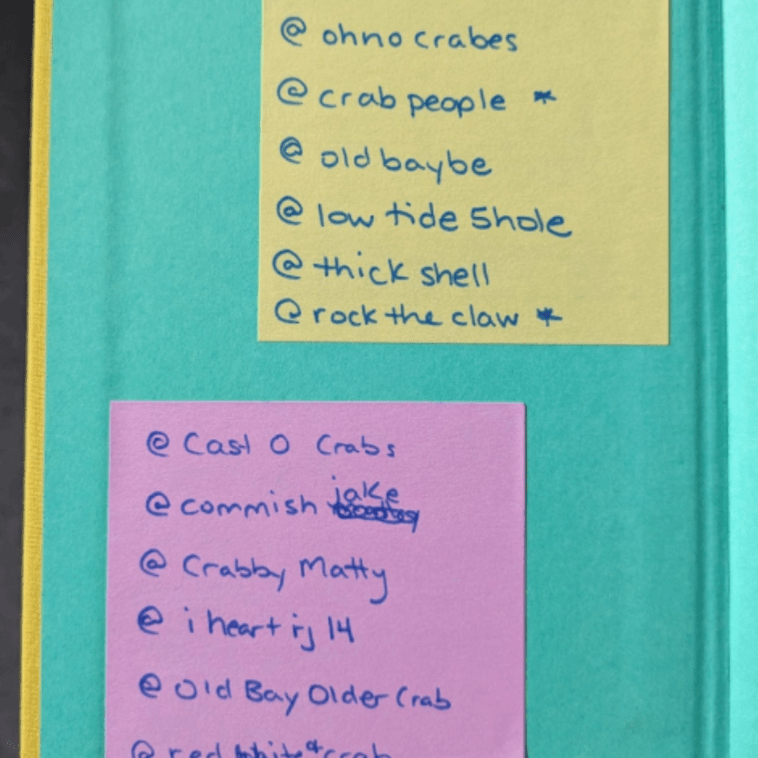 @ ohno crabes
@ crab people *
@ old baybe
@ low tide 5hole
@ thick shell
@ rock the claw *
@ Cast O Crabs
@ commish jake
@ Crabby Matty
@ i heart rj 14
@ Old Bay Older Crab
@ red white & crab